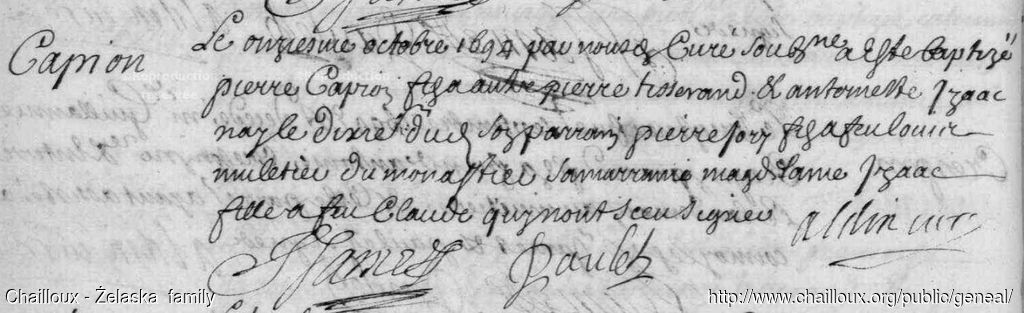 Capion
Le onziesme octobre 1694 par nous Curé soubzne a esté baptizé
pierre Capion fils a autre pierre tisserand & antoinette Izaac
nay le dixie dud son parrain pierre fils a feu louis
muletier du monastier sa marraine magdelaine Izaac
fille a feu Claude quy n'ont sceu signer
Chailloux - Żelaska family
http://www.chailloux.org/public/geneal/